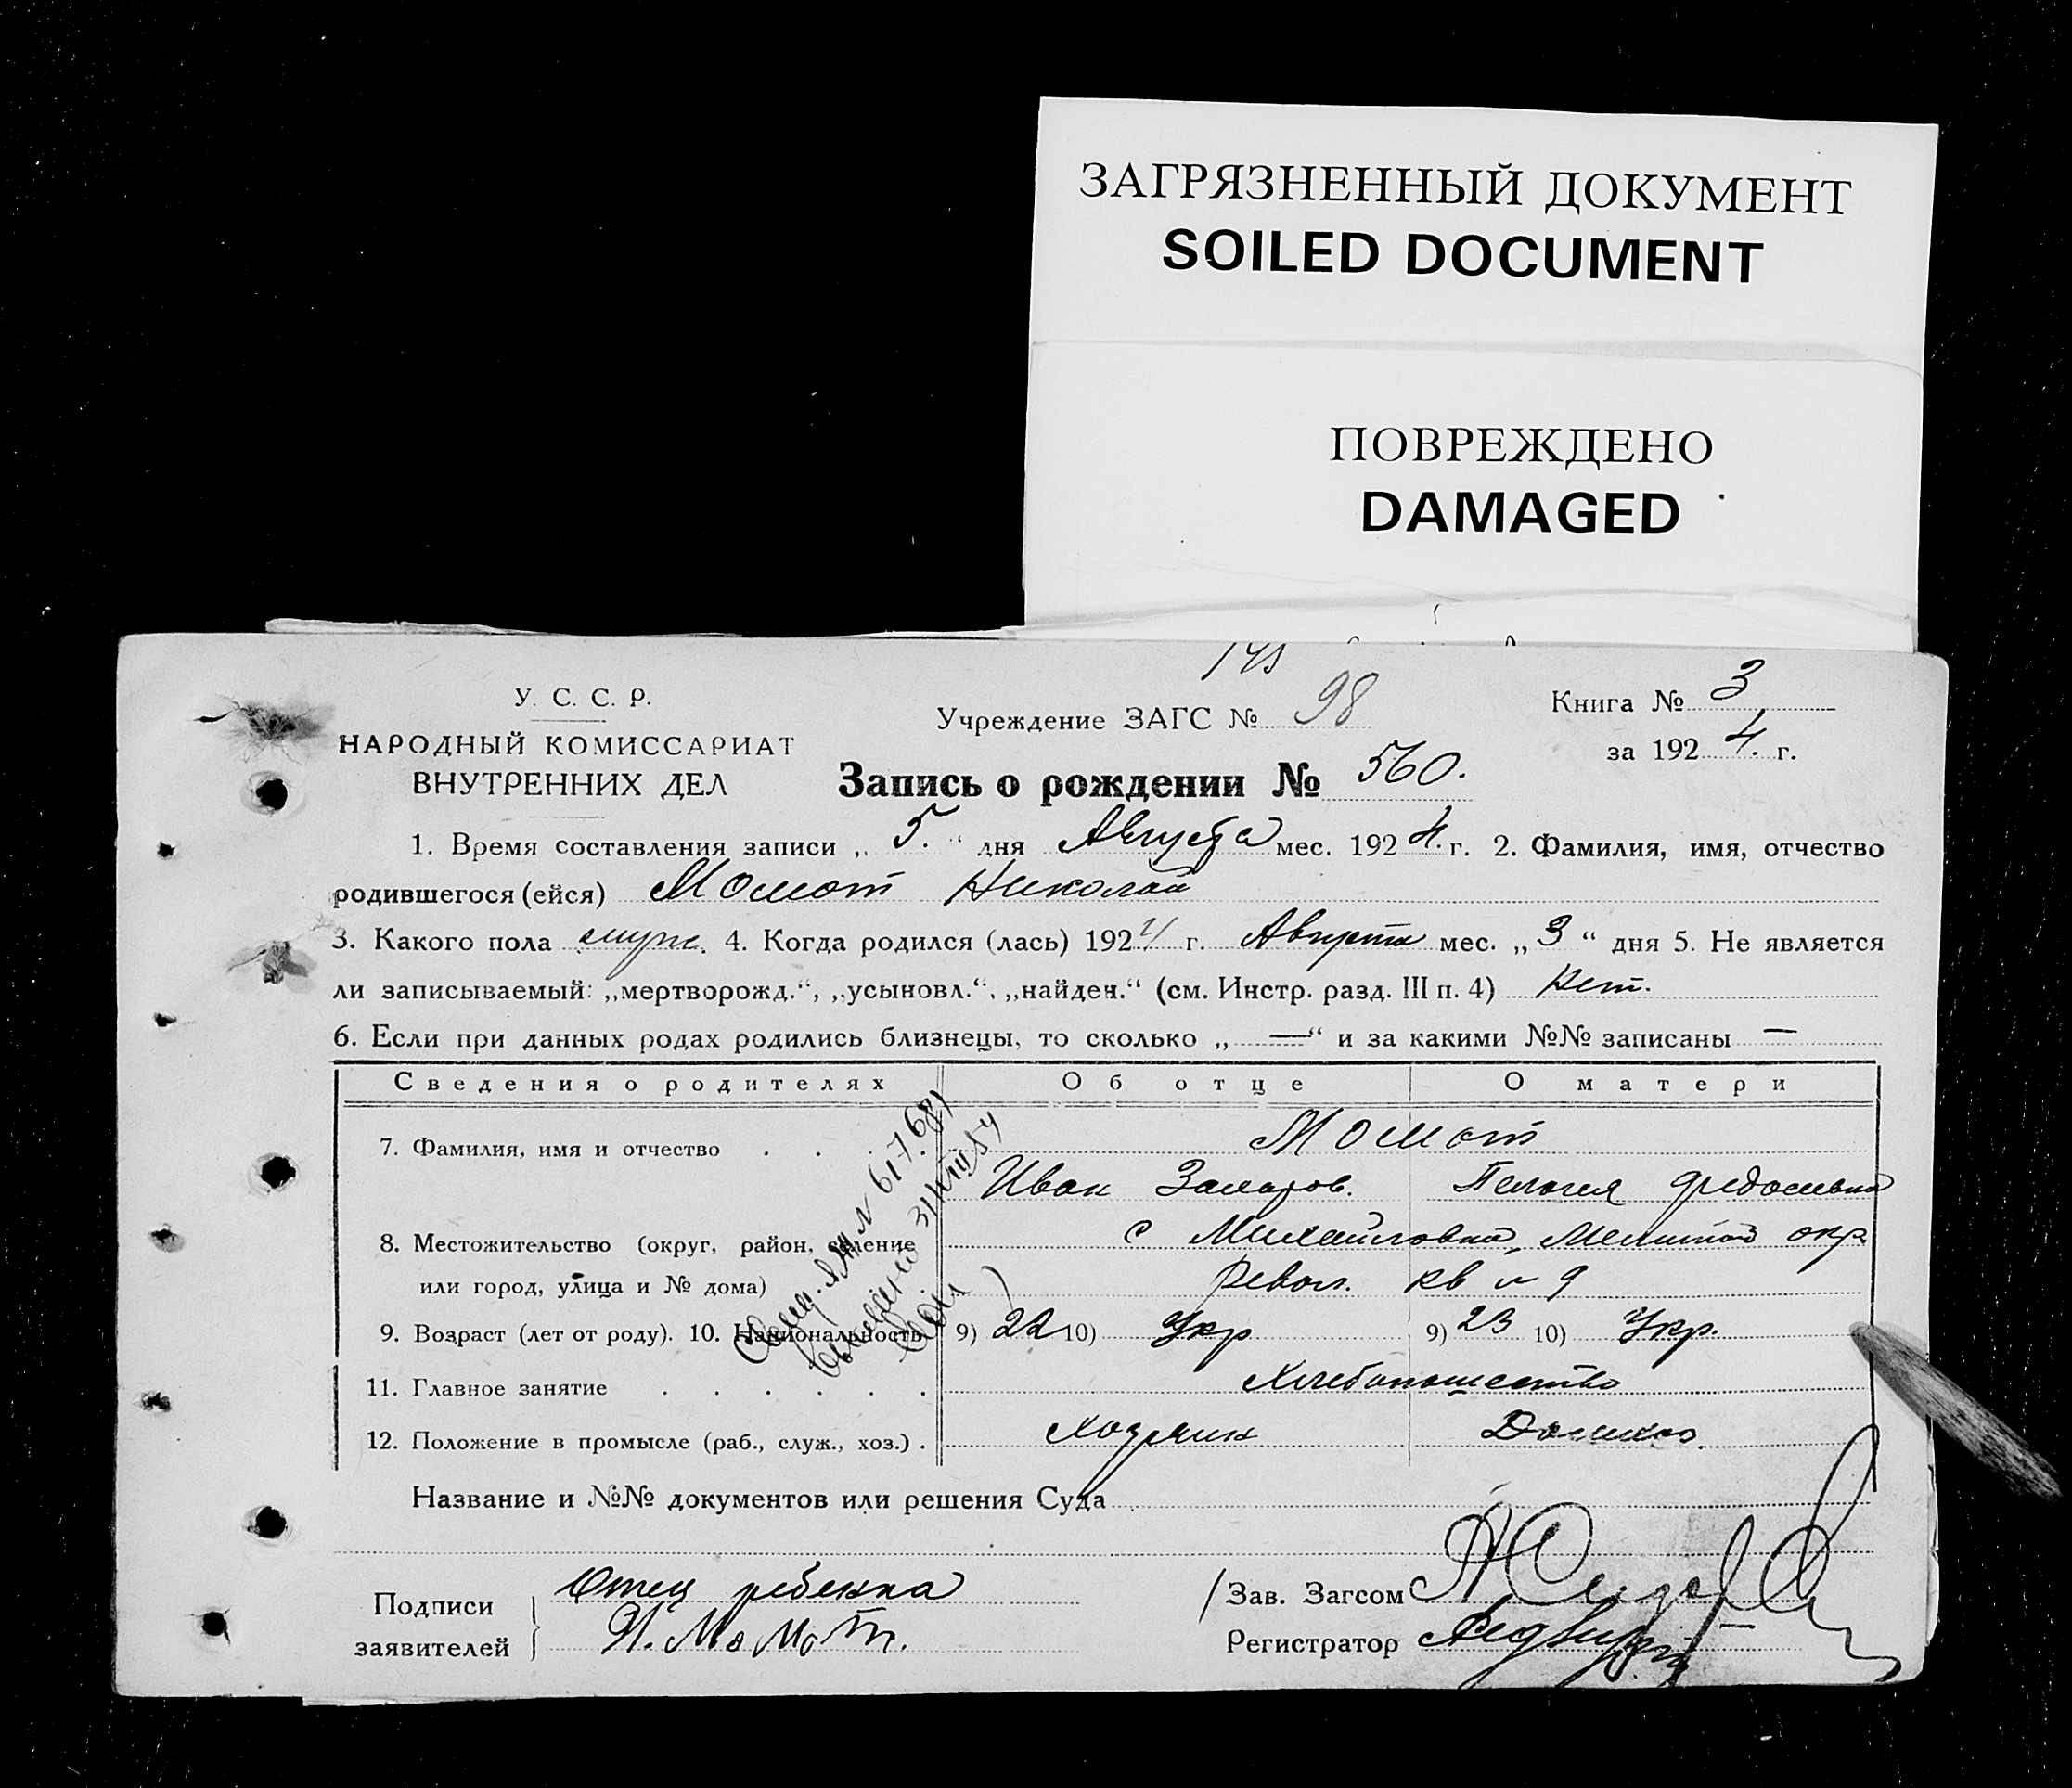 ЗАГРЯЗНЕННЫЙ ДОКУМЕНТ
SOILED DOCUMENT
ПОВРЕЖДЕНО
DAMAGED
У. С. С. Р.
НАРОДНЫЙ КОМИССАРИАТ
ВНУТРЕННИХ ДЕЛ
Учреждение ЗАГС № 98
Книга № 3
за 1924. г.
Запись о рождении № 560.
1. Время составления записи „ 5. “ дня Августа мес. 1924. г. 2. Фамилия, имя, отчество
родившегося (ейся) Момот Николай
3. Какого пола муж. 4. Когда родился (лась) 1924 г. Августа мес. „ 3 “ дня 5. Не является
ли записываемый: „мертворожд.“, „усыновл.“, „найден.“ (см. Инстр. разд. III п. 4) Нет.
6. Если при данных родах родились близнецы, то сколько „ — “ и за какими №№ записаны —
Сведения о родителях Об отце О матери
7. Фамилия, имя и отчество . . . Момот
Иван Захаров. Пелагея Федосеевна
8. Местожительство (округ, район, селение с Михайловка, Мелитоп окр.
или город, улица и № дома) Револ. кв № 9
9. Возраст (лет от роду). 10. Национальность 9) 22 10) Укр 9) 23 10) Укр.
11. Главное занятие . . . . . . Хлебопашество
12. Положение в промысле (раб., служ., хоз.) . хозяин Домохоз.
Название и №№ документов или решения Суда
Подписи заявителей
Отец ребенка
И. Момот.
Зав. Загсом
Регистратор